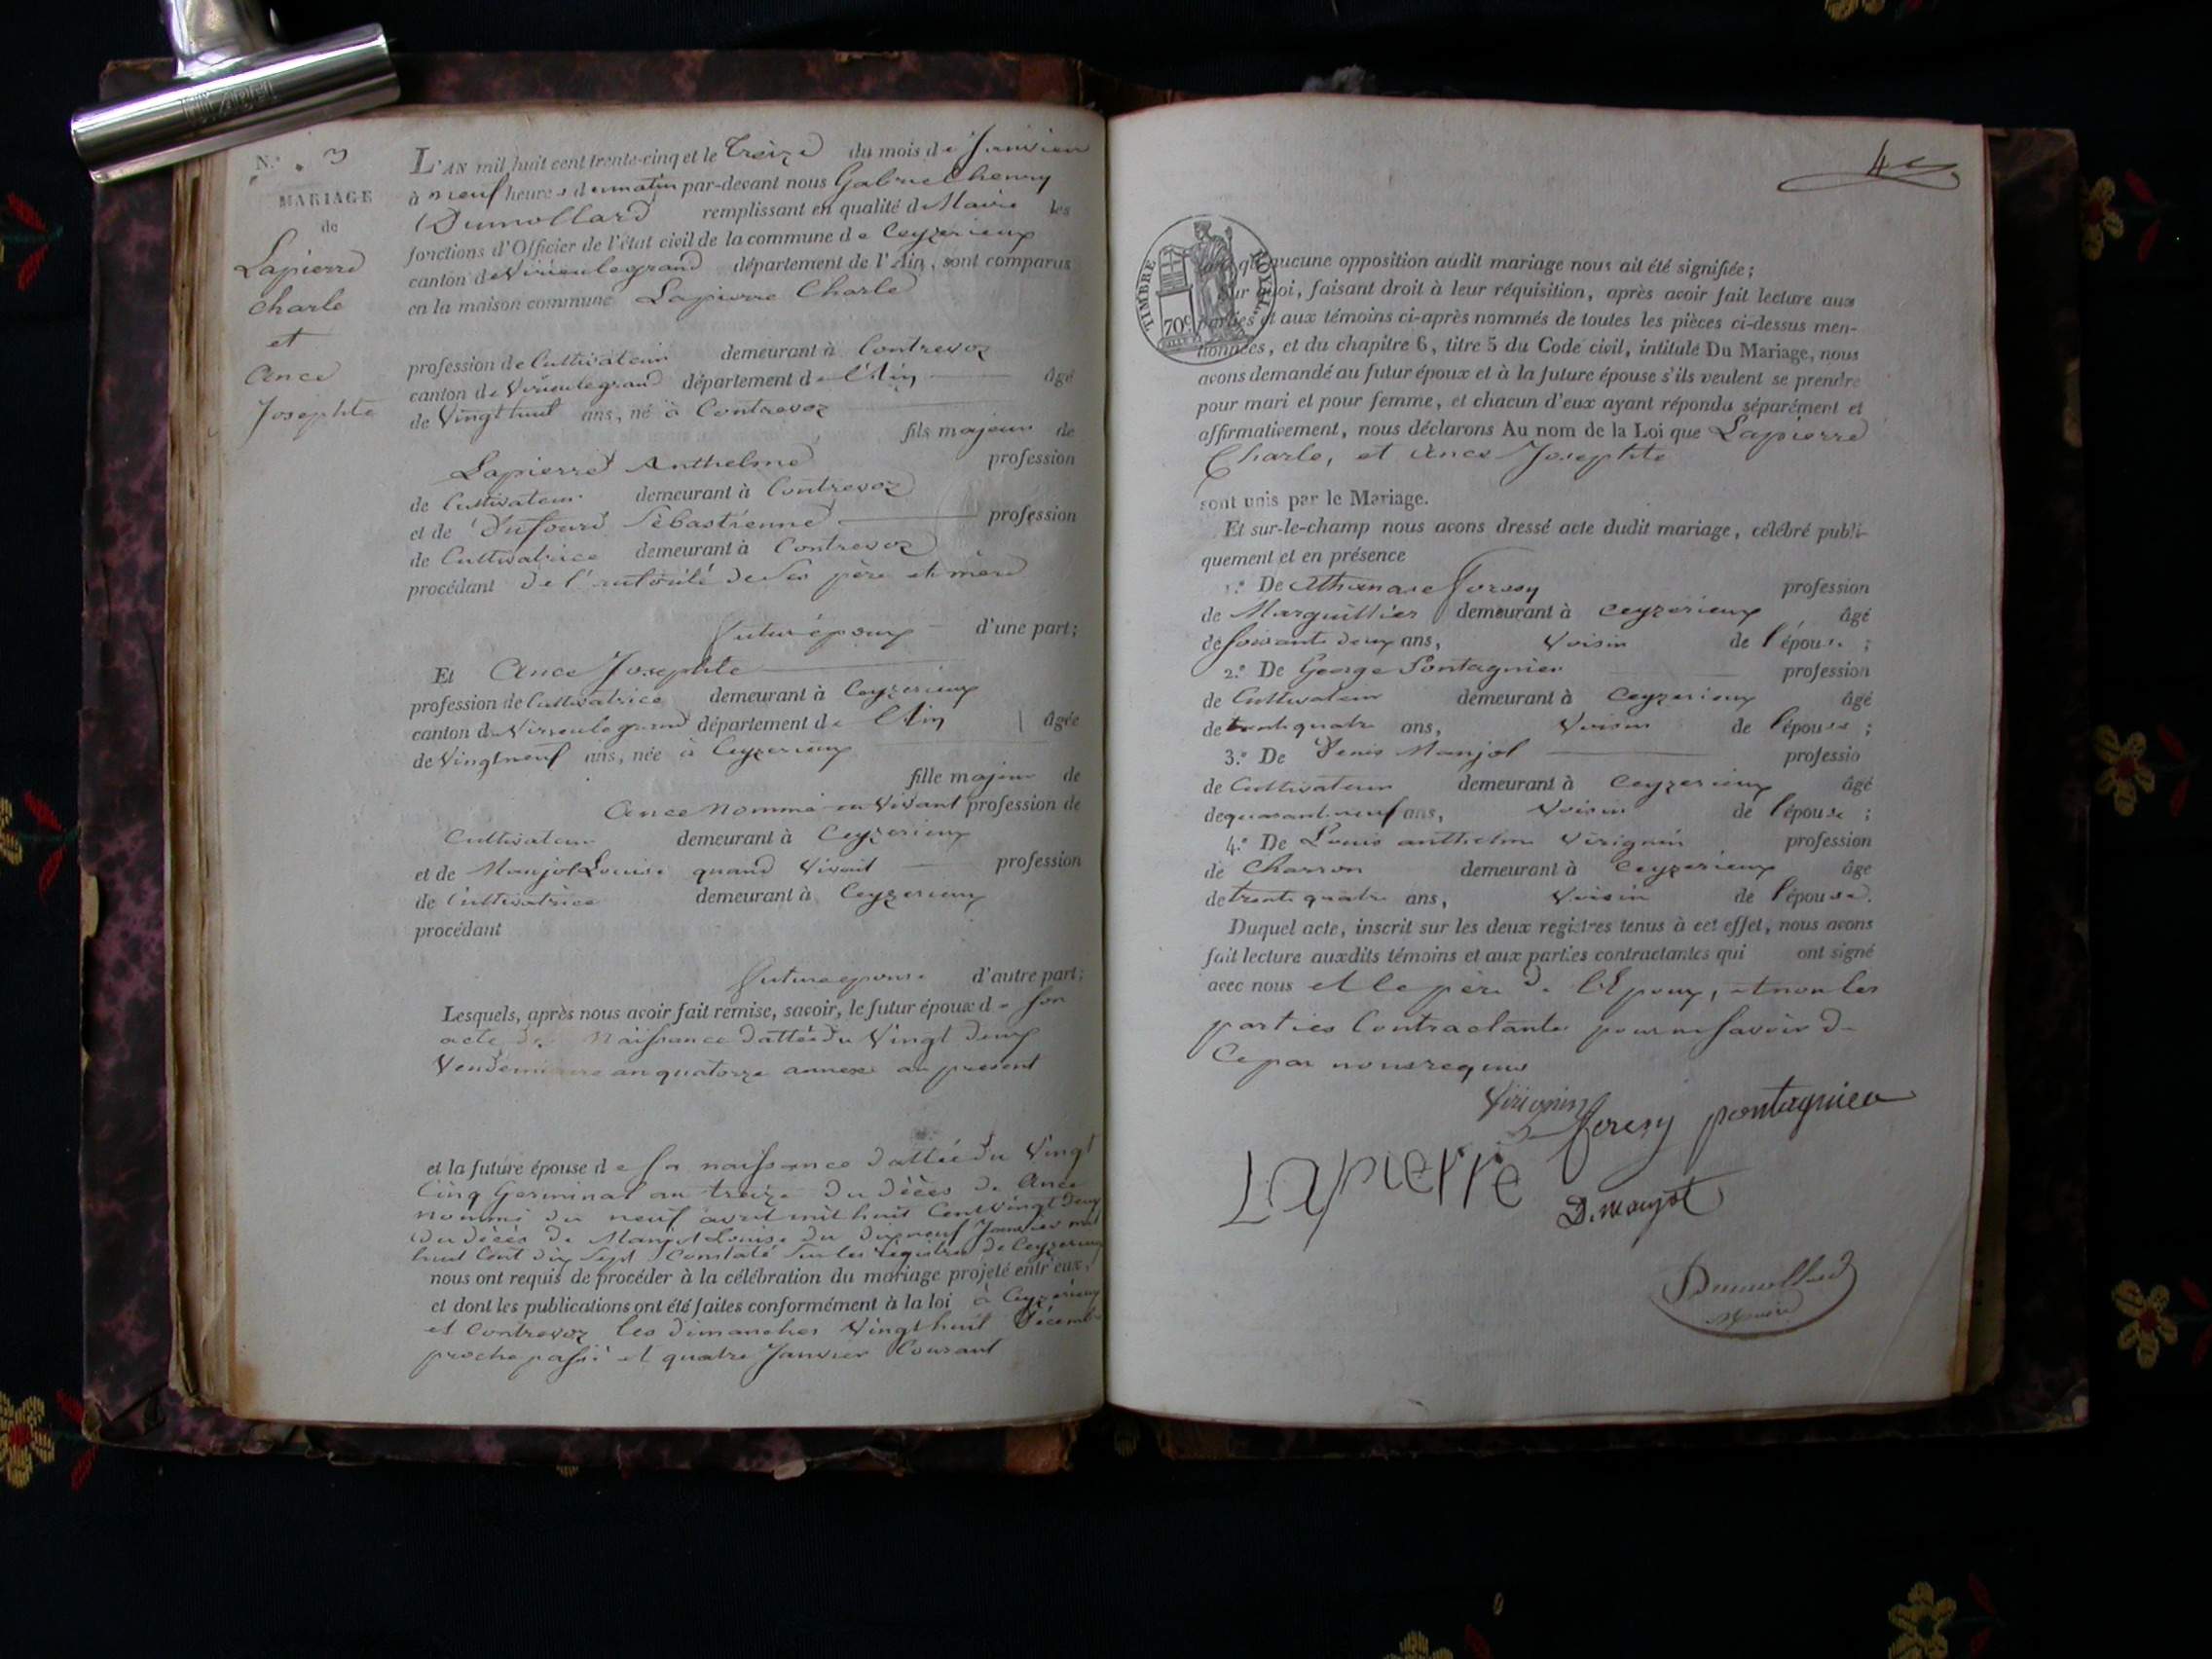 N.° 3
MARIAGE
de
Lapierre
Charle
et
Ance
Josephte
L'AN mil huit cent trente-cinq et le treize du mois de Janvier
à neuf heures du matin par-devant nous Gabriel henry
Dumollard remplissant en qualité de Maire les
fonctions d'Officier de l'état civil de la commune de Ceyzerieux
canton de Virieulegrand département de l'Ain, sont comparus
en la maison commune Lapierre Charle
profession de Cultivateur demeurant à Contrevoz
canton de Virieulegrand département de l'Ain âgé
de Vingt huit ans, né à Contrevoz
fils majeur de
Lapierre Anthelme profession
de Cultivateur demeurant à Contrevoz
et de Dufour Sébastienne profession
de Cultivatrice demeurant à Contrevoz
procédant de l'autorité de ses père et mère
futur époux d'une part;
Et Ance Josephte
profession de Cultivatrice demeurant à Ceyzerieux
canton de Virieulegrand département de l'Ain âgée
de Vingt neuf ans, née à Ceyzerieux
fille majeur de
Ance Nommé en Vivant profession de
Cultivateur demeurant à Ceyzerieux
et de Manjot Louise quand Vivait profession
de Cultivatrice demeurant à Ceyzerieux
procédant
future epouse d'autre part;
Lesquels, après nous avoir fait remise, savoir, le futur époux de son
acte de Naissance dattée du Vingt deux
Vendemiaire an quatorze annexé au present
et la future épouse de sa naissance dattée du Vingt
Cinq Germinal an treize du décès de Ance
nommé du neuf avril mil huit Cent Vingt deux
du décès de Manjot Louise du dix neuf Janvier mil
huit Cent dix Sept Constaté sur les registres de Ceyzerieux
nous ont requis de procéder à la célébration du mariage projeté entr'eux,
et dont les publications ont été faites conformément à la loi à Ceyzerieux
et Contrevoz les dimanches Vingt huit Décembre
proche passé et quatre Janvier Courant
4e
TIMBRE ROYAL
70c
sans qu'aucune opposition audit mariage nous ait été signifiée;
Sur quoi, faisant droit à leur réquisition, après avoir fait lecture aux
parties et aux témoins ci-après nommés de toutes les pièces ci-dessus men-
tionnées, et du chapitre 6, titre 5 du Code civil, intitulé Du Mariage, nous
avons demandé au futur époux et à la future épouse s'ils veulent se prendre
pour mari et pour femme, et chacun d'eux ayant répondu séparément et
affirmativement, nous déclarons Au nom de la Loi que Lapierre
Charle, et Ance Josephte
sont unis par le Mariage.
Et sur-le-champ nous avons dressé acte dudit mariage, célébré publi-
quement et en présence
1.° De Athanase foresy profession
de Marguillier demeurant à Ceyzerieux âgé
de soixante deux ans, Voisin de l'épouse ;
2.° De George Pontagnier profession
de Cultivateur demeurant à Ceyzerieux âgé
de trente quatre ans, Voisin de l'épouse ;
3.° De Denis Manjot professio
de Cultivateur demeurant à Ceyzerieux âgé
de quarante neuf ans, Voisin de l'épouse ;
4.° De Louis anthelme Virignin profession
de Charron demeurant à Ceyzerieux âgé
de trente quatre ans, Voisin de l'épouse.
Duquel acte, inscrit sur les deux registres tenus à cet effet, nous avons
fait lecture auxdits témoins et aux parties contractantes qui ont signé
avec nous et le père de l'Epoux, et non les
parties Contractantes pour ne savoir de
Ce par nous requis
Virignin
foresy pontagnier
Lapierre D. manjot
Dumollard
Maire